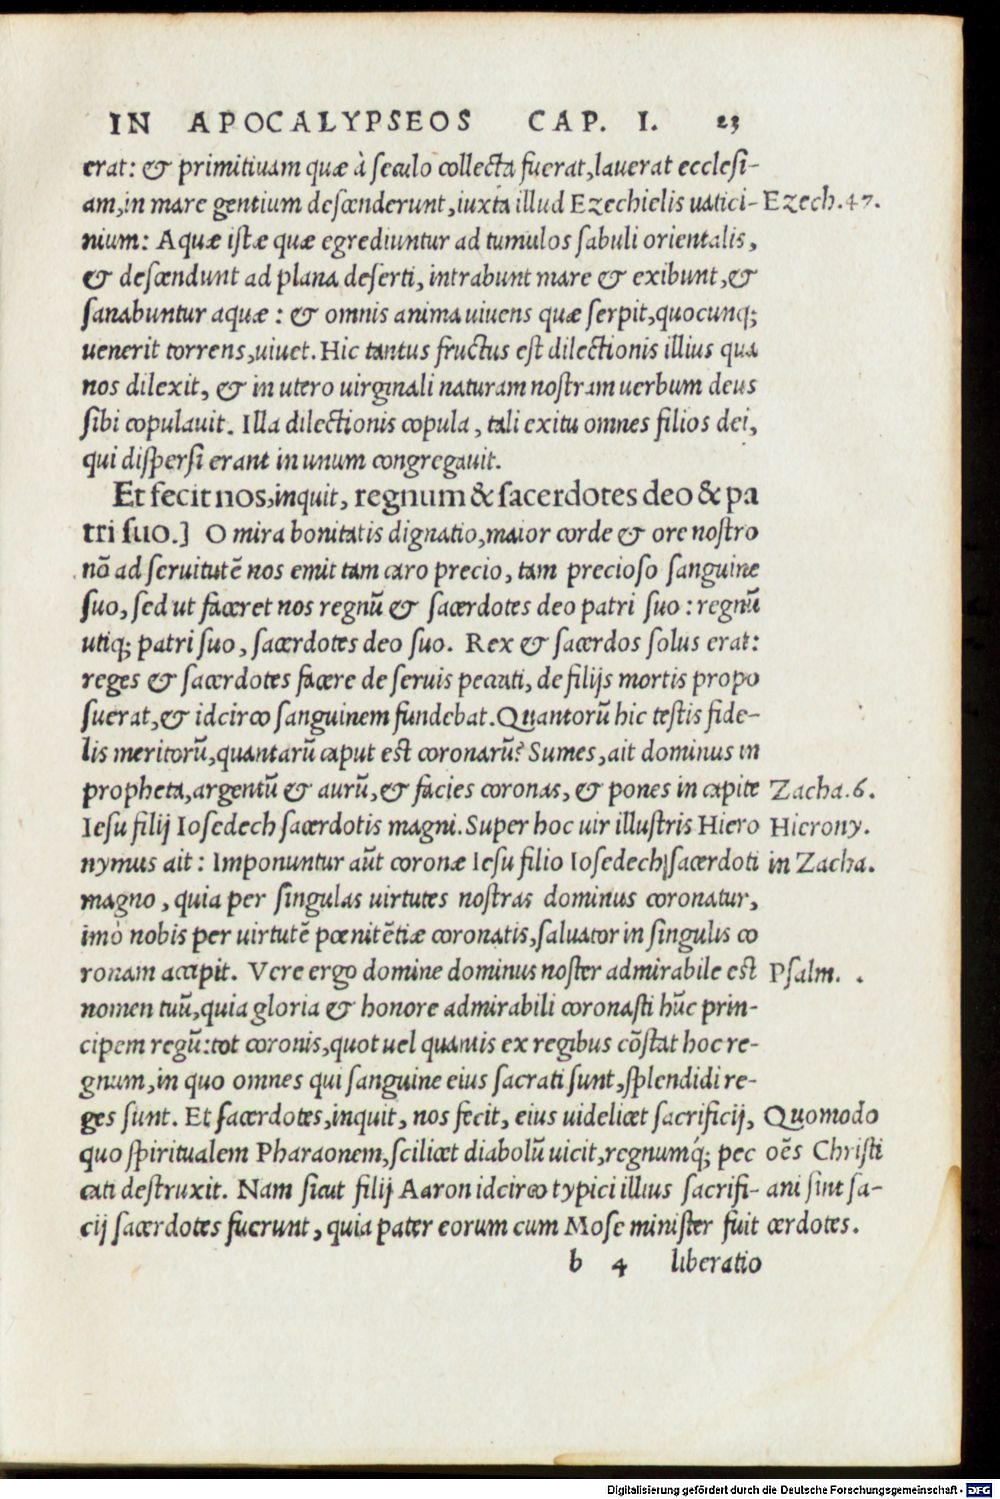 IN APOCALYPSEOS CAP. I. 23
erat: & primitiuam quæ à seculo collecta fuerat, lauerat ecclesi-
am, in mare gentium descenderunt, iuxta illud Ezechielis uatici- Ezech. 47.
nium: Aquæ istæ quæ egrediuntur ad tumulos sabuli orientalis,
& descendunt ad plana deserti, intrabunt mare & exibunt, &
sanabuntur aquæ: & omnis anima uiuens quæ serpit, quocunq;
uenerit torrens, uiuet. Hic tantus fructus est dilectionis illius qua
nos dilexit, & in utero uirginali naturam nostram uerbum deus
sibi copulauit. Illa dilectionis copula, tali exitu omnes filios dei,
qui dispersi erant in unum congregauit.
Et fecit nos, inquit, regnum & sacerdotes deo & pa
tri suo.] O mira bonitatis dignatio, maior corde & ore nostro
nō ad seruitutē nos emit tam caro precio, tam precioso sanguine
suo, sed ut faceret nos regnū & sacerdotes deo patri suo: regnū
utiq; patri suo, sacerdotes deo suo. Rex & sacerdos solus erat:
reges & sacerdotes facere de seruis peccati, de filijs mortis propo
suerat, & idcirco sanguinem fundebat. Quantorū hic testis fide-
lis meritorū, quantarū caput est coronarū? Sumes, ait dominus in
propheta, argentū & aurū, & facies coronas, & pones in capite Zacha. 6.
Iesu filij Iosedech sacerdotis magni. Super hoc uir illustris Hiero Hierony.
nymus ait: Imponuntur aūt coronæ Iesu filio Iosedech sacerdoti in Zacha.
magno, quia per singulas uirtutes nostras dominus coronatur,
imò nobis per uirtutē pœnitētiæ coronatis, saluator in singulis co
ronam accipit. Vere ergo domine dominus noster admirabile est Psalm. .
nomen tuū, quia gloria & honore admirabili coronasti hūc prin-
cipem regū: tot coronis, quot uel quantis ex regibus cōstat hoc re-
gnum, in quo omnes qui sanguine eius sacrati sunt, splendidi re-
ges sunt. Et sacerdotes, inquit, nos fecit, eius uidelicet sacrificij, Quomodo
quo spiritualem Pharaonem, scilicet diabolū uicit, regnumq́; pec oēs Christi
cati destruxit. Nam sicut filij Aaron idcirco typici illius sacrifi- ani sint sa-
cij sacerdotes fuerunt, quia pater eorum cum Mose minister fuit cerdotes.
b 4 liberatio
Digitalisierung gefördert durch die Deutsche Forschungsgemeinschaft - DFG